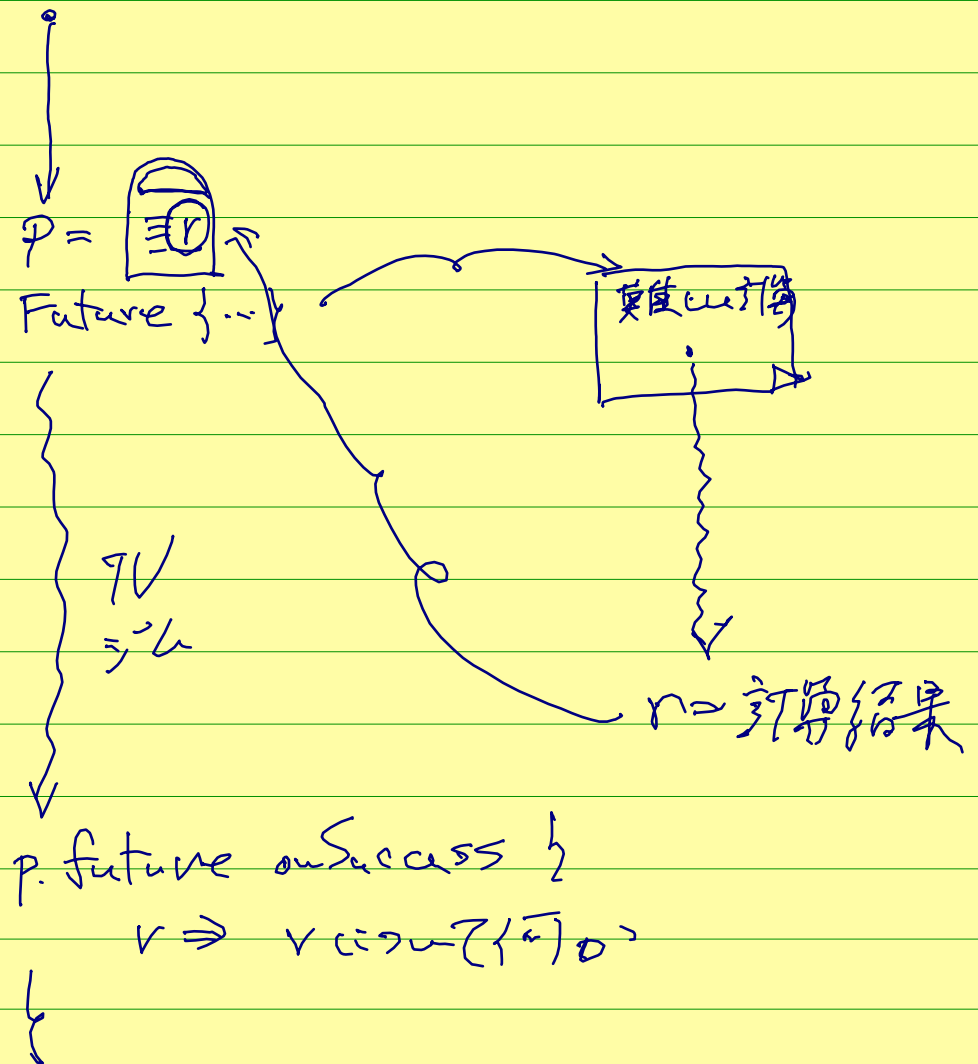 p =
r
Future { ... }
難しい計算
TV
ゲーム
r => 計算結果
p. future onSuccess {
r ⇒ rについて何か